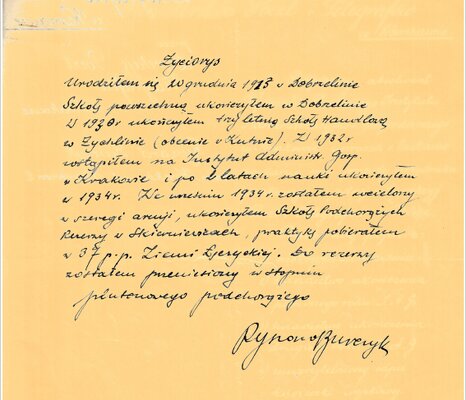 Życiorys
Urodziłem się 20 grudnia 1913 w Dobrzelinie
Szkołę powszechną ukończyłem w Dobrzelinie
W 1930r ukończyłem trzyletnią Szkołę Handlową
w Żychlinie (obecnie w Kutnie). W 1932r
wstąpiłem na Instytut Administ. Gosp.
w Krakowie i po 2 latach nauki ukończyłem
w 1934r. We wrześniu 1934r. zostałem wcielony
w szeregi armji, ukończyłem Szkołę Podchorążych
Rezerwy w Skierniewicach, praktykę pobierałem
w 37 p.p. Ziemi Łęczyckiej. Do rezerwy
zostałem przeniesiony w stopniu
plutonowego podchorążego